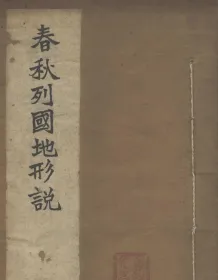 春秋列國地形説